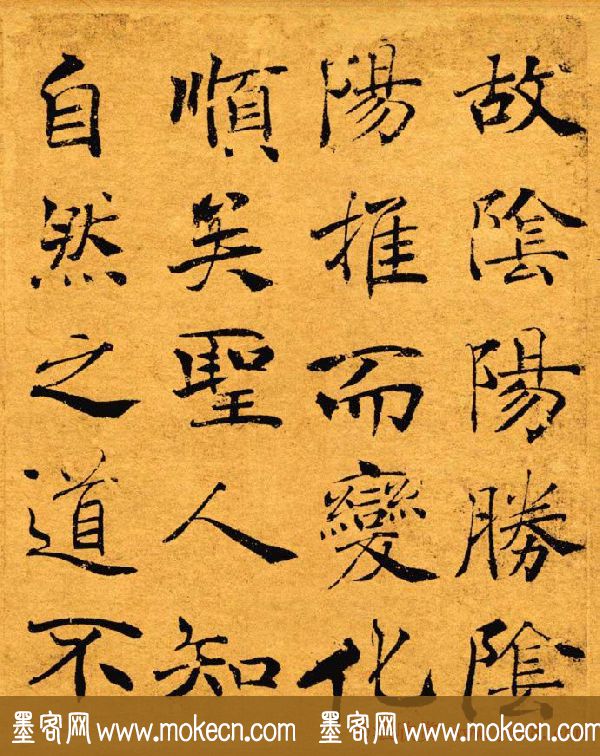 故陰陽勝陰
陽推而變化
順矣聖人知
自然之道不
墨客网 www.mokecn.com 墨客网 www.mokecn.com